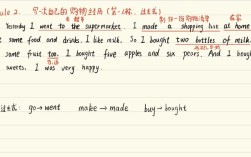 ule 2. 写一次自己的购物经历 (第一人称, 过去式)
Yesterday I went to the supermarket. I made a shopping list at home
some food and drinks. I like milk. So I bought two bottles of milk
some fruit too. I bought five apples and six pears. And I bough
sweets. I was very happy.
过去式: go→went make→made buy→bought